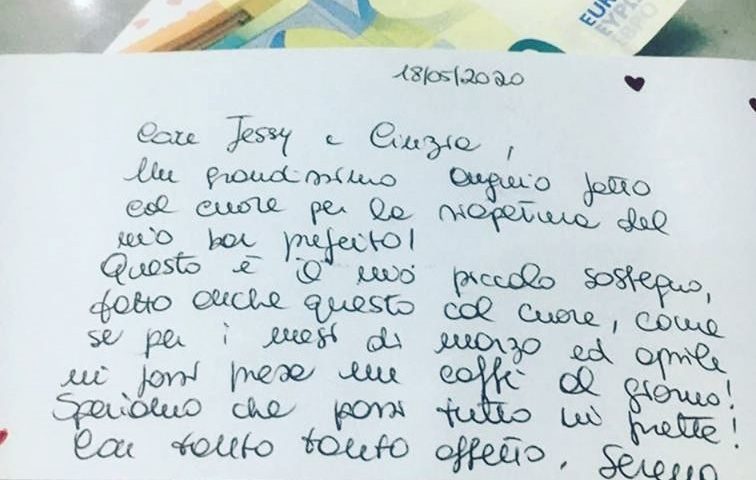 EURO
ΕΥΡΩ
ЕВРО
18/05/2020
Care Jessy e Cinzia,
Un grandissimo augurio fatto
col cuore per la riapertura del
mio bar preferito!
Questo è il mio piccolo sostegno,
fatto anche questo col cuore, come
se per i mesi di marzo ed aprile
mi fossi presa un caffè al giorno!
Speriamo che passi tutto in fretta!
Con tanto tanto affetto, Serena